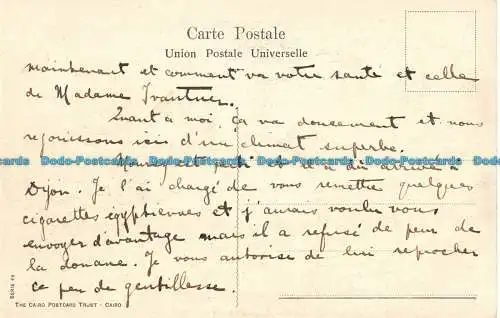 Carte Postale
Union Postale Universelle
maintenant et comment va votre santé et celle
de Madame
Quant à moi, ça va doucement et nous
rejouissons ici d'un climat superbe.
est parti et il a dû arrivé à
Dodo-Postcards Dodo-Postcards Dodo-Postcards Dodo-Postcards
Dijon. Je l'ai chargé de vous remettre quelques
cigarettes egyptiennes et j'aurais voulu vous
envoyer d'avantage mais il a refusé de peur de
la douane. Je vous autorise de lui reprocher
ce peu de gentillesse.
SERIE
THE CAIRO POSTCARD TRUST - CAIRO